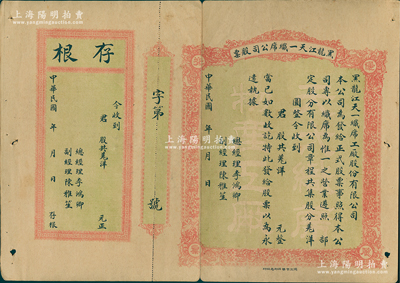 上海陽明拍賣
www.yangmingauction.com
黑龍江天一織席公司股票
黑龍江天一織席工廠股份有限公司
本公司為發給正式股票事照得本公
司專以織席為惟一之營業遵照部
定股份有限公司章程共集股分羌洋
圓整今收到
君 股共羌洋 元整
當已如數收訖特此發給股票以為永
遠執據
總經理李鴻卿
副經理陳雅筌
中華民國 年 月 日
字第 號
存根
今收到
君 股共羌洋 元正
總經理李鴻卿
副經理陳雅筌
中華民國 年 月 日 存根
上海陽明拍賣
www.yangmingauction.com